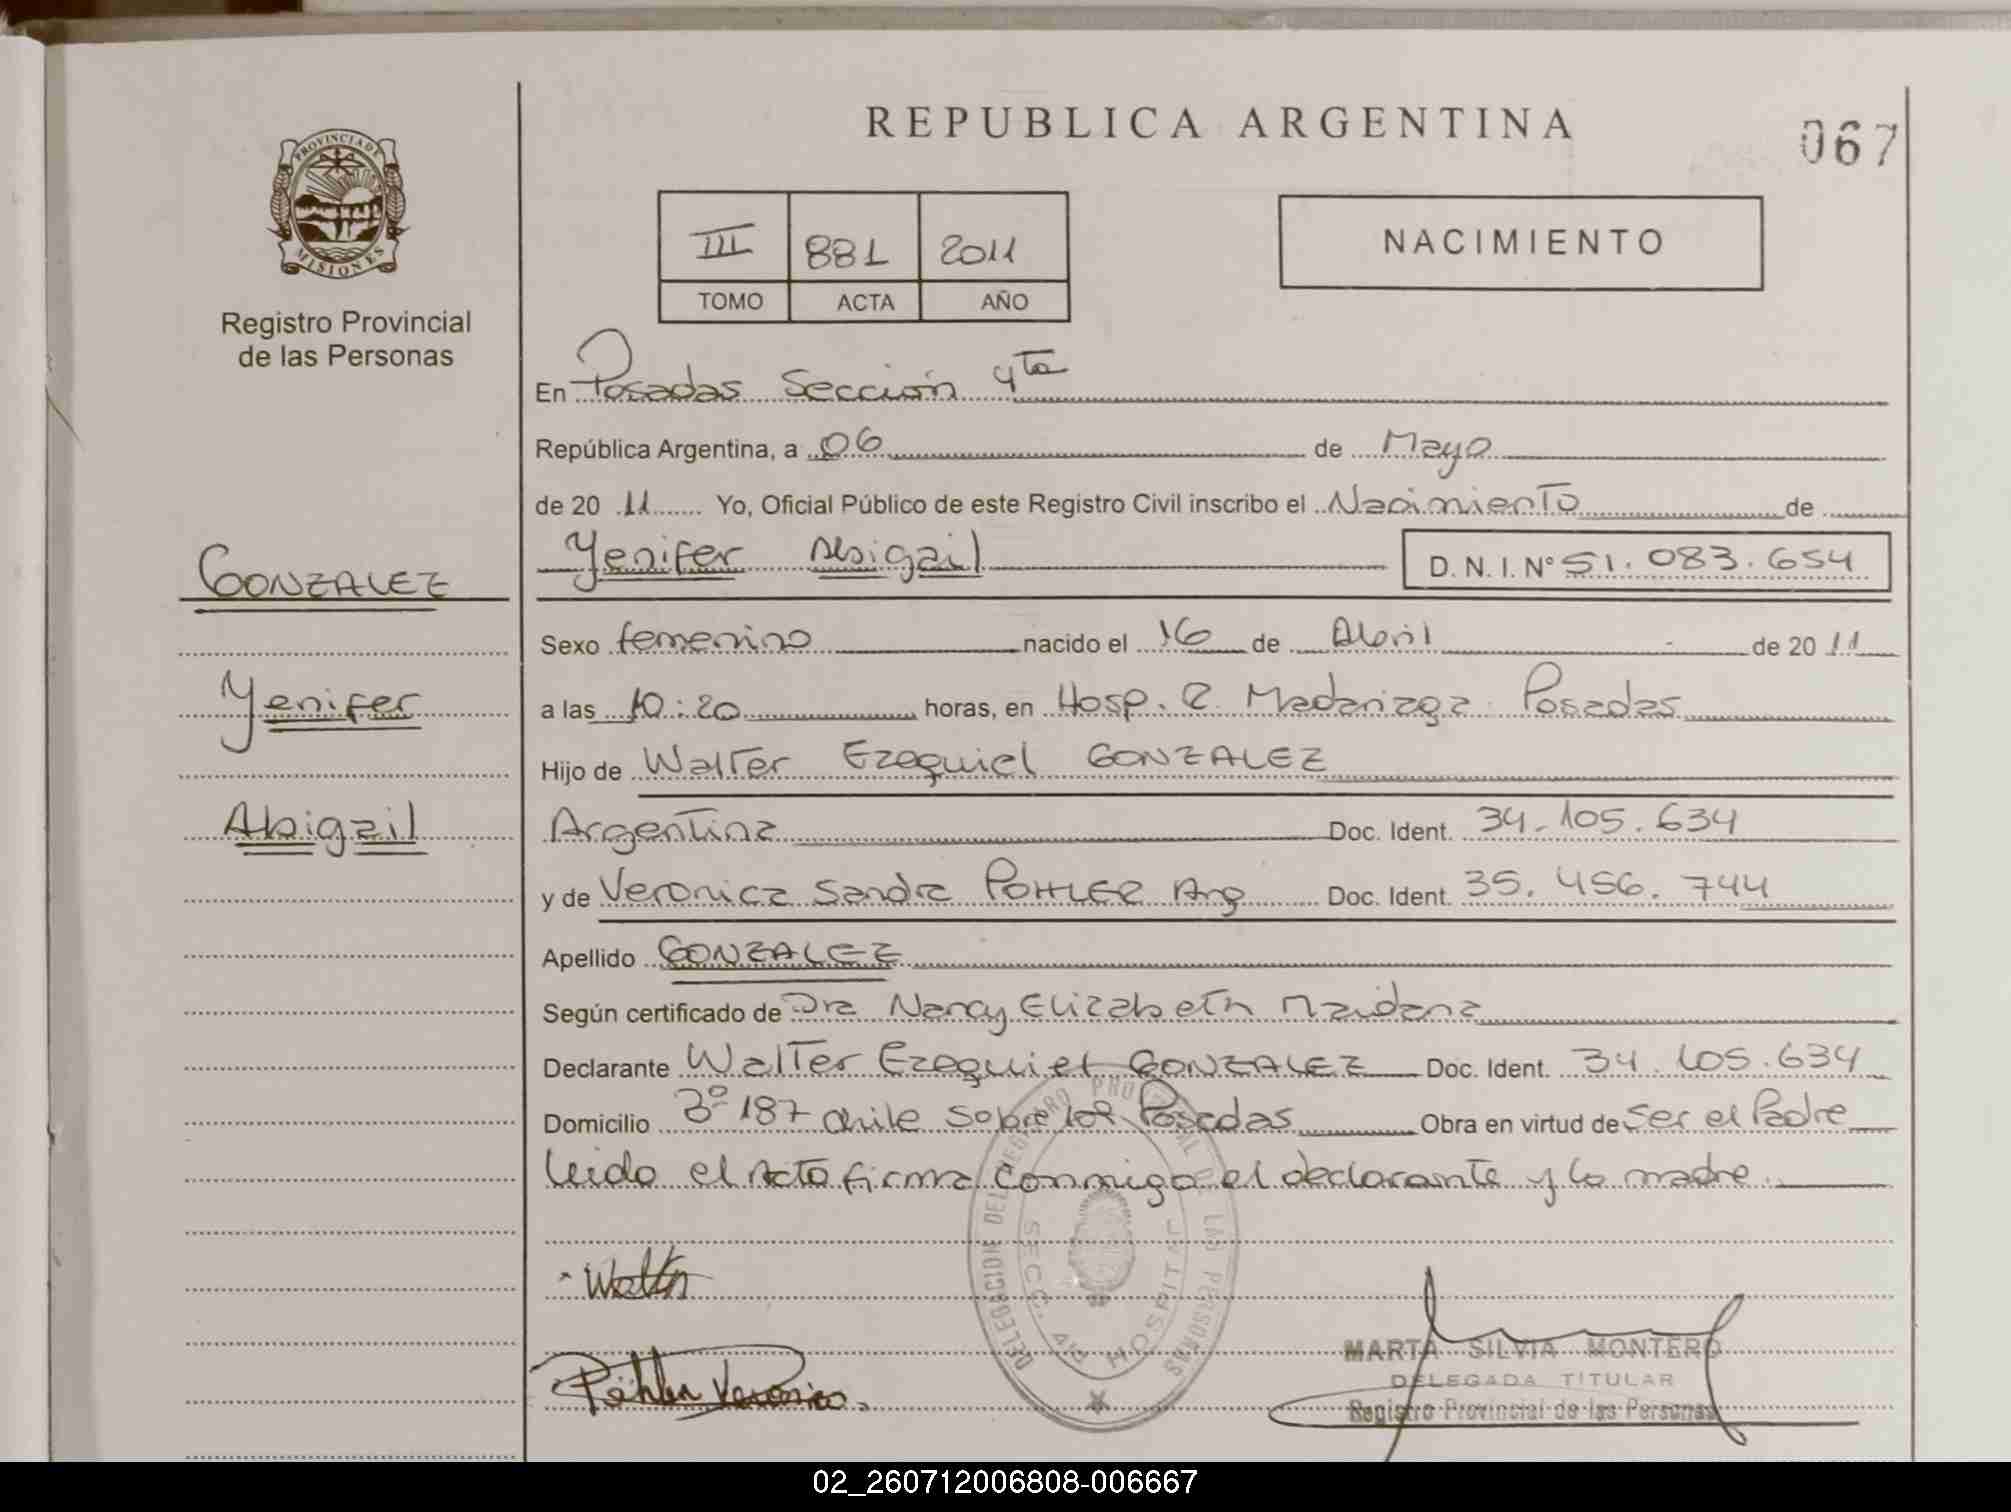 REPUBLICA ARGENTINA
067
PROVINCIA DE
MISIONES
Registro Provincial
de las Personas
III 881 2011
TOMO ACTA AÑO
NACIMIENTO
En Posadas Sección 4ta
República Argentina, a 06 de Mayo
de 20 11 Yo, Oficial Público de este Registro Civil inscribo el Nacimiento de
Yenifer Abigail D. N. I. Nº 51.083.654
GONZALEZ
Yenifer
Abigail
Sexo femenino nacido el 16 de Abril de 20 11
a las 10:20 horas, en Hosp. R. Madariaga Posadas
Hijo de Walter Ezequiel GONZALEZ
Argentina Doc. Ident. 34.105.634
y de Veronica Sandra POHLER Arg Doc. Ident. 35.456.744
Apellido GONZALEZ
Según certificado de Dra Nancy Elizabeth Maidana
Declarante Walter Ezequiel GONZALEZ Doc. Ident. 34.105.634
Domicilio 3º 187 chile sobre Posadas Obra en virtud de Ser el Padre
leido el Acto firma conmigo el declarante y la madre
DELEGACION DEL REGISTRO PROVINCIAL DE LAS PERSONAS
SECC. 4ta HOSPITAL
Walter
Pöhler Veronica.
MARTA SILVIA MONTERO
DELEGADA TITULAR
Registro Provincial de las Personas
02_260712006808-006667